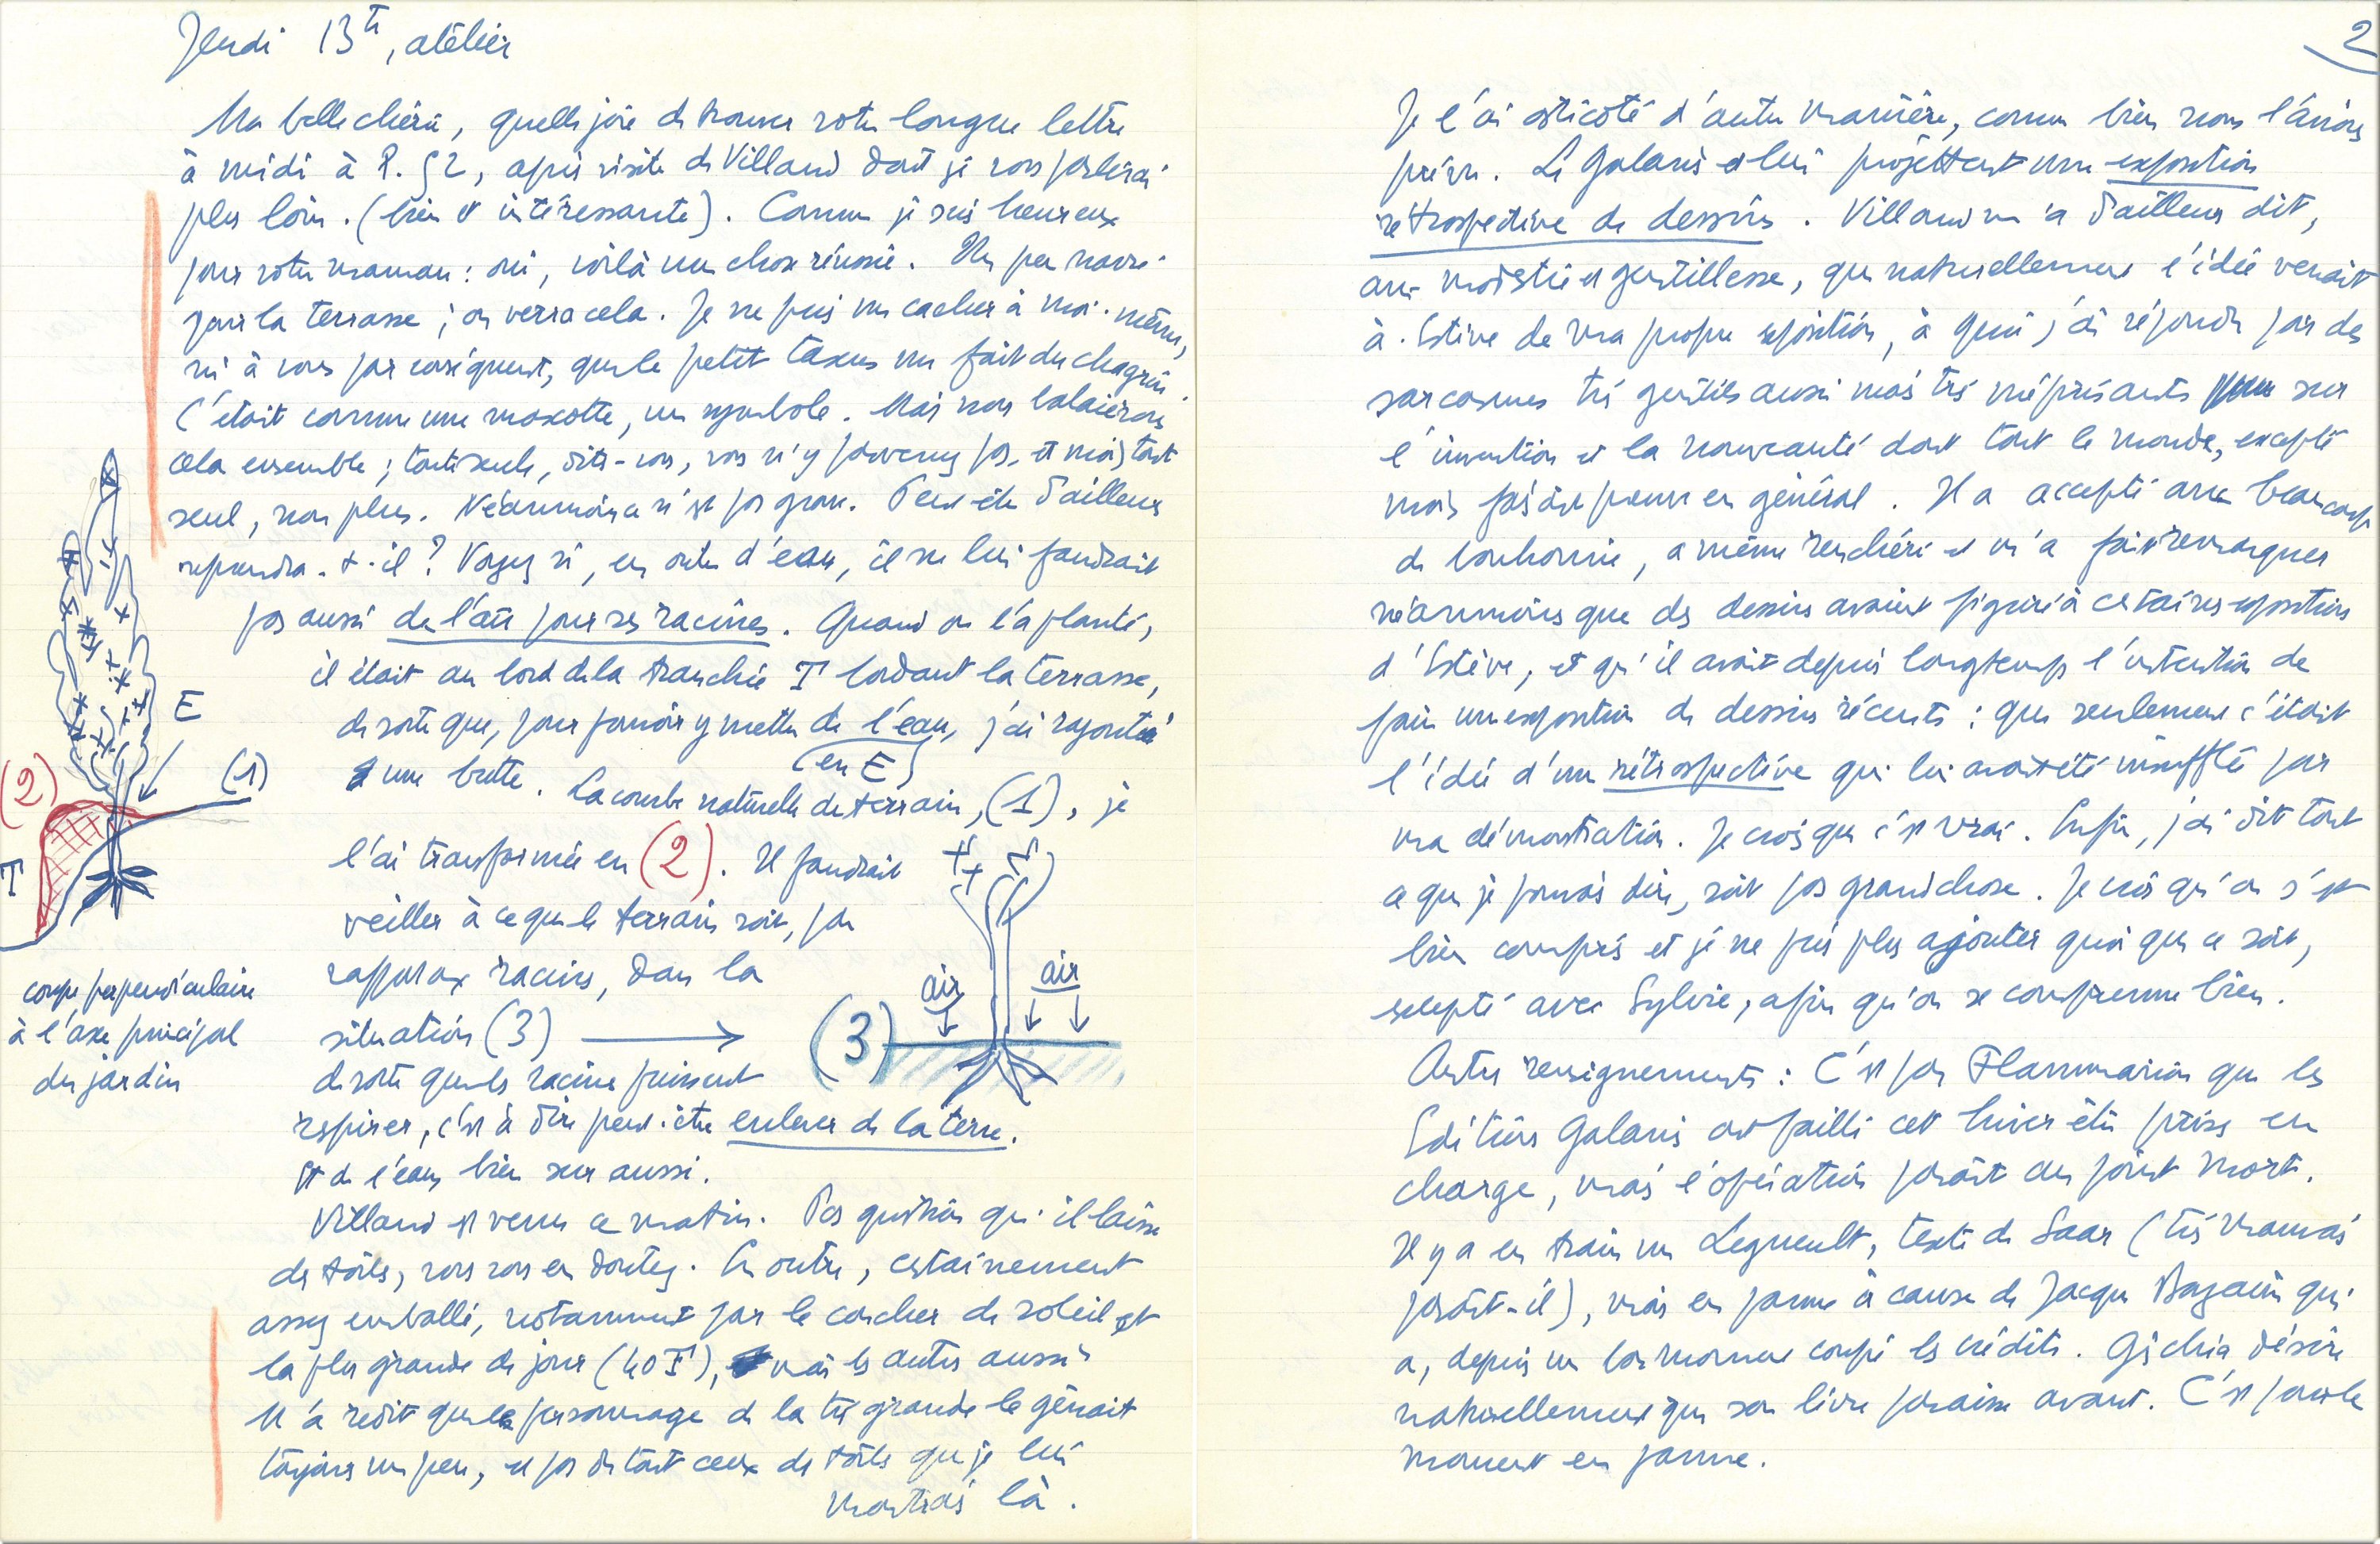 Jeudi 13h, atelier
Ma belle chérie, quelle joie de trouver votre longue lettre
à midi à R. 52, après visite de Villand dont je vous parlerai
plus loin. (bien et intéressante). Comme je suis heureux
pour votre maman : oui, voilà une chose réussie. Un peu navré
pour la terrasse ; on verra cela. Je ne puis me cacher à moi-même,
ni à vous par conséquent, que le petit taxus me fait du chagrin.
C'était comme une mascotte, un symbole. Mais nous balaierons
cela ensemble ; toute seule, dites-vous, vous n'y parvenez pas, et moi, tout
seul, non plus. Néanmoins ce n'est pas grave. Peut-être d'ailleurs
reprendra-t-il ? Voyez si, en outre d'eau, il ne lui faudrait
pas aussi de l'air pour ses racines. Quand on l'a planté,
il était au bord de la tranchée T bordant la terrasse,
de sorte que, pour pouvoir y mettre de l'eau, j'ai rajouté
(en E)
une butte. La courbe naturelle de terrain, (1), je
l'ai transformée en (2). Il faudrait
veiller à ce que le terrain soit, par
rapport aux racines, dans la
situation (3)
de sorte que les racines puissent
respirer, c'est à dire peut-être enlever de la terre.
Et de l'eau bien sur aussi.
E
(1)
(2)
T
coupe perpendiculaire
à l'axe principal
du jardin
air
air
(3)
Villand est venu ce matin. Pas question qu'il laisse
des toiles, vous vous en doutez. En outre, certainement
assez emballé, notamment par le coucher de soleil et
la plus grande de jour (40 F), mais les autres aussi.
M'a redit que le personnage de la très grande le gênait
toujours un peu, et pas du tout ceux des toiles que je lui
montrais là.
2
Je l'ai asticoté d'autre manière, comme bien nous l'avions
prévu. Le Galanis et lui projettent une exposition
rétrospective de dessins. Villand m'a d'ailleurs dit,
avec modestie et gentillesse, que naturellement l'idée venait
à Estève de ma propre exposition, à quoi j'ai répondu par des
sarcasmes très gentils aussi mais très méprisants sur
l'invention et la nouveauté dont tout le monde, excepté
moi, fait preuve en général. Il a accepté avec beaucoup
de bonhomie, a même renchéri et m'a fait remarquer
néanmoins que des dessins avaient figuré à certaines expositions
d'Estève, et qu'il avait depuis longtemps l'intention de
faire une exposition de dessins récents : que seulement c'était
l'idée d'une rétrospective qui lui avait été insufflée par
ma démonstration. Je crois que c'est vrai. Enfin, j'ai dit tout
ce que je pouvais dire, soit pas grand chose. Je crois qu'on s'est
bien compris et je ne puis plus ajouter quoi que ce soit,
excepté avec Sylvie, afin qu'on se comprenne bien.
Autres renseignements : C'est par Flammarion que les
Editions Galanis ont failli cet hiver être prises en
charge, mais l'opération paraît au point mort.
Il y a en train un Legueult, texte de Saar (très mauvais
paraît-il), mais en panne à cause de Jacques Bazaine qui
a, depuis un bon moment coupé les crédits. Gischia désire
naturellement que son livre paraisse avant. C'est pour le
moment en panne.